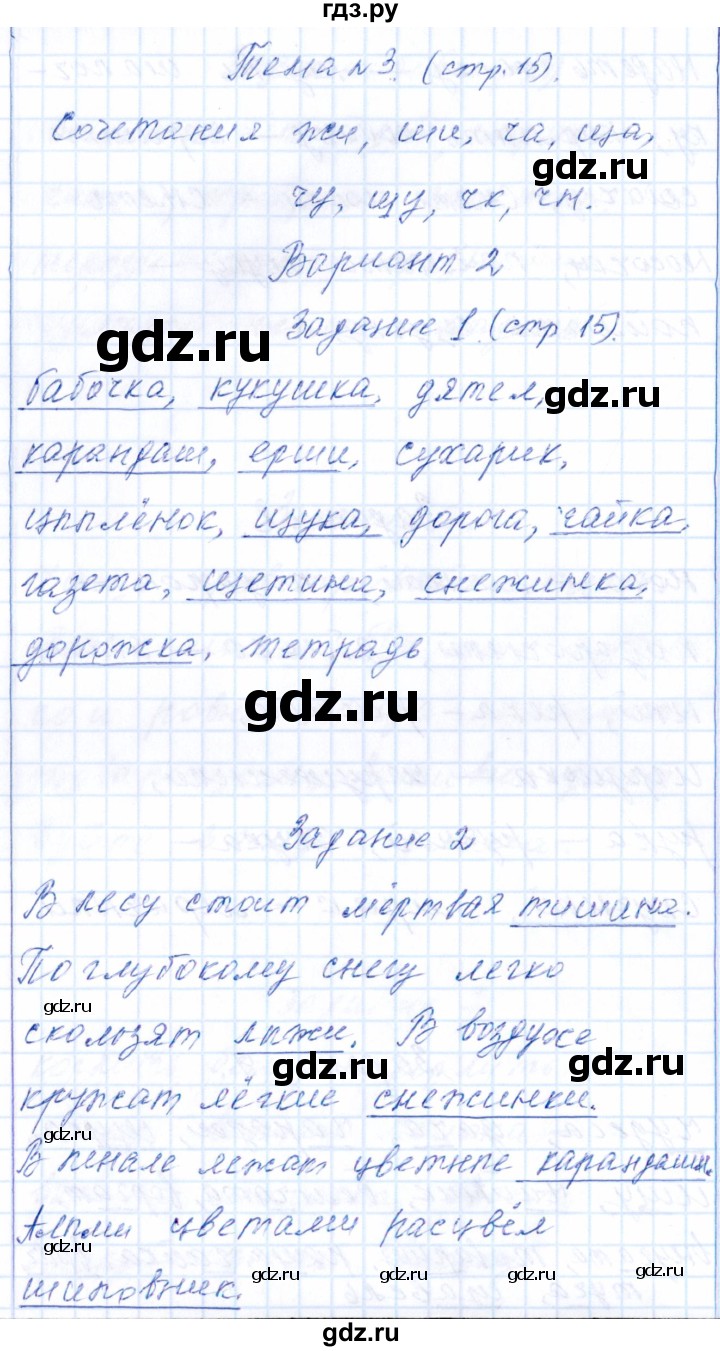 гдз.ру
Тема №3. (стр. 15).
Сочетания жи, ши, ча, ща,
gdz.ru
чу, щу, чк, чн.
Вариант 2
Задание 1. (стр 15).
gdz.ru
бабочка, кукушка, дятел,
gdz.ru
карандаш, ерши, сухарик,
цыплёнок, щука, дорога, чайка,
газета, щетина, снежинка,
дорожка, тетрадь
gdz.ru
Задание 2
В лесу стоит мёртвая тишина.
По глубокому снегу легко
gdz.ru
скользят лыжи. В воздухе
gdz.ru
gdz.ru
кружат лёгкие снежинки.
gdz.ru
В пенале лежат цветные карандаши.
Алыми цветами расцвёл
шиповник.
gdz.ru
gdz.ru
gdz.ru
gdz.ru
gdz.ru